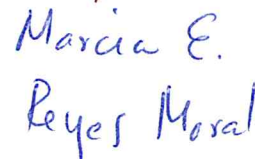 Marcia E.
Reyes Moral